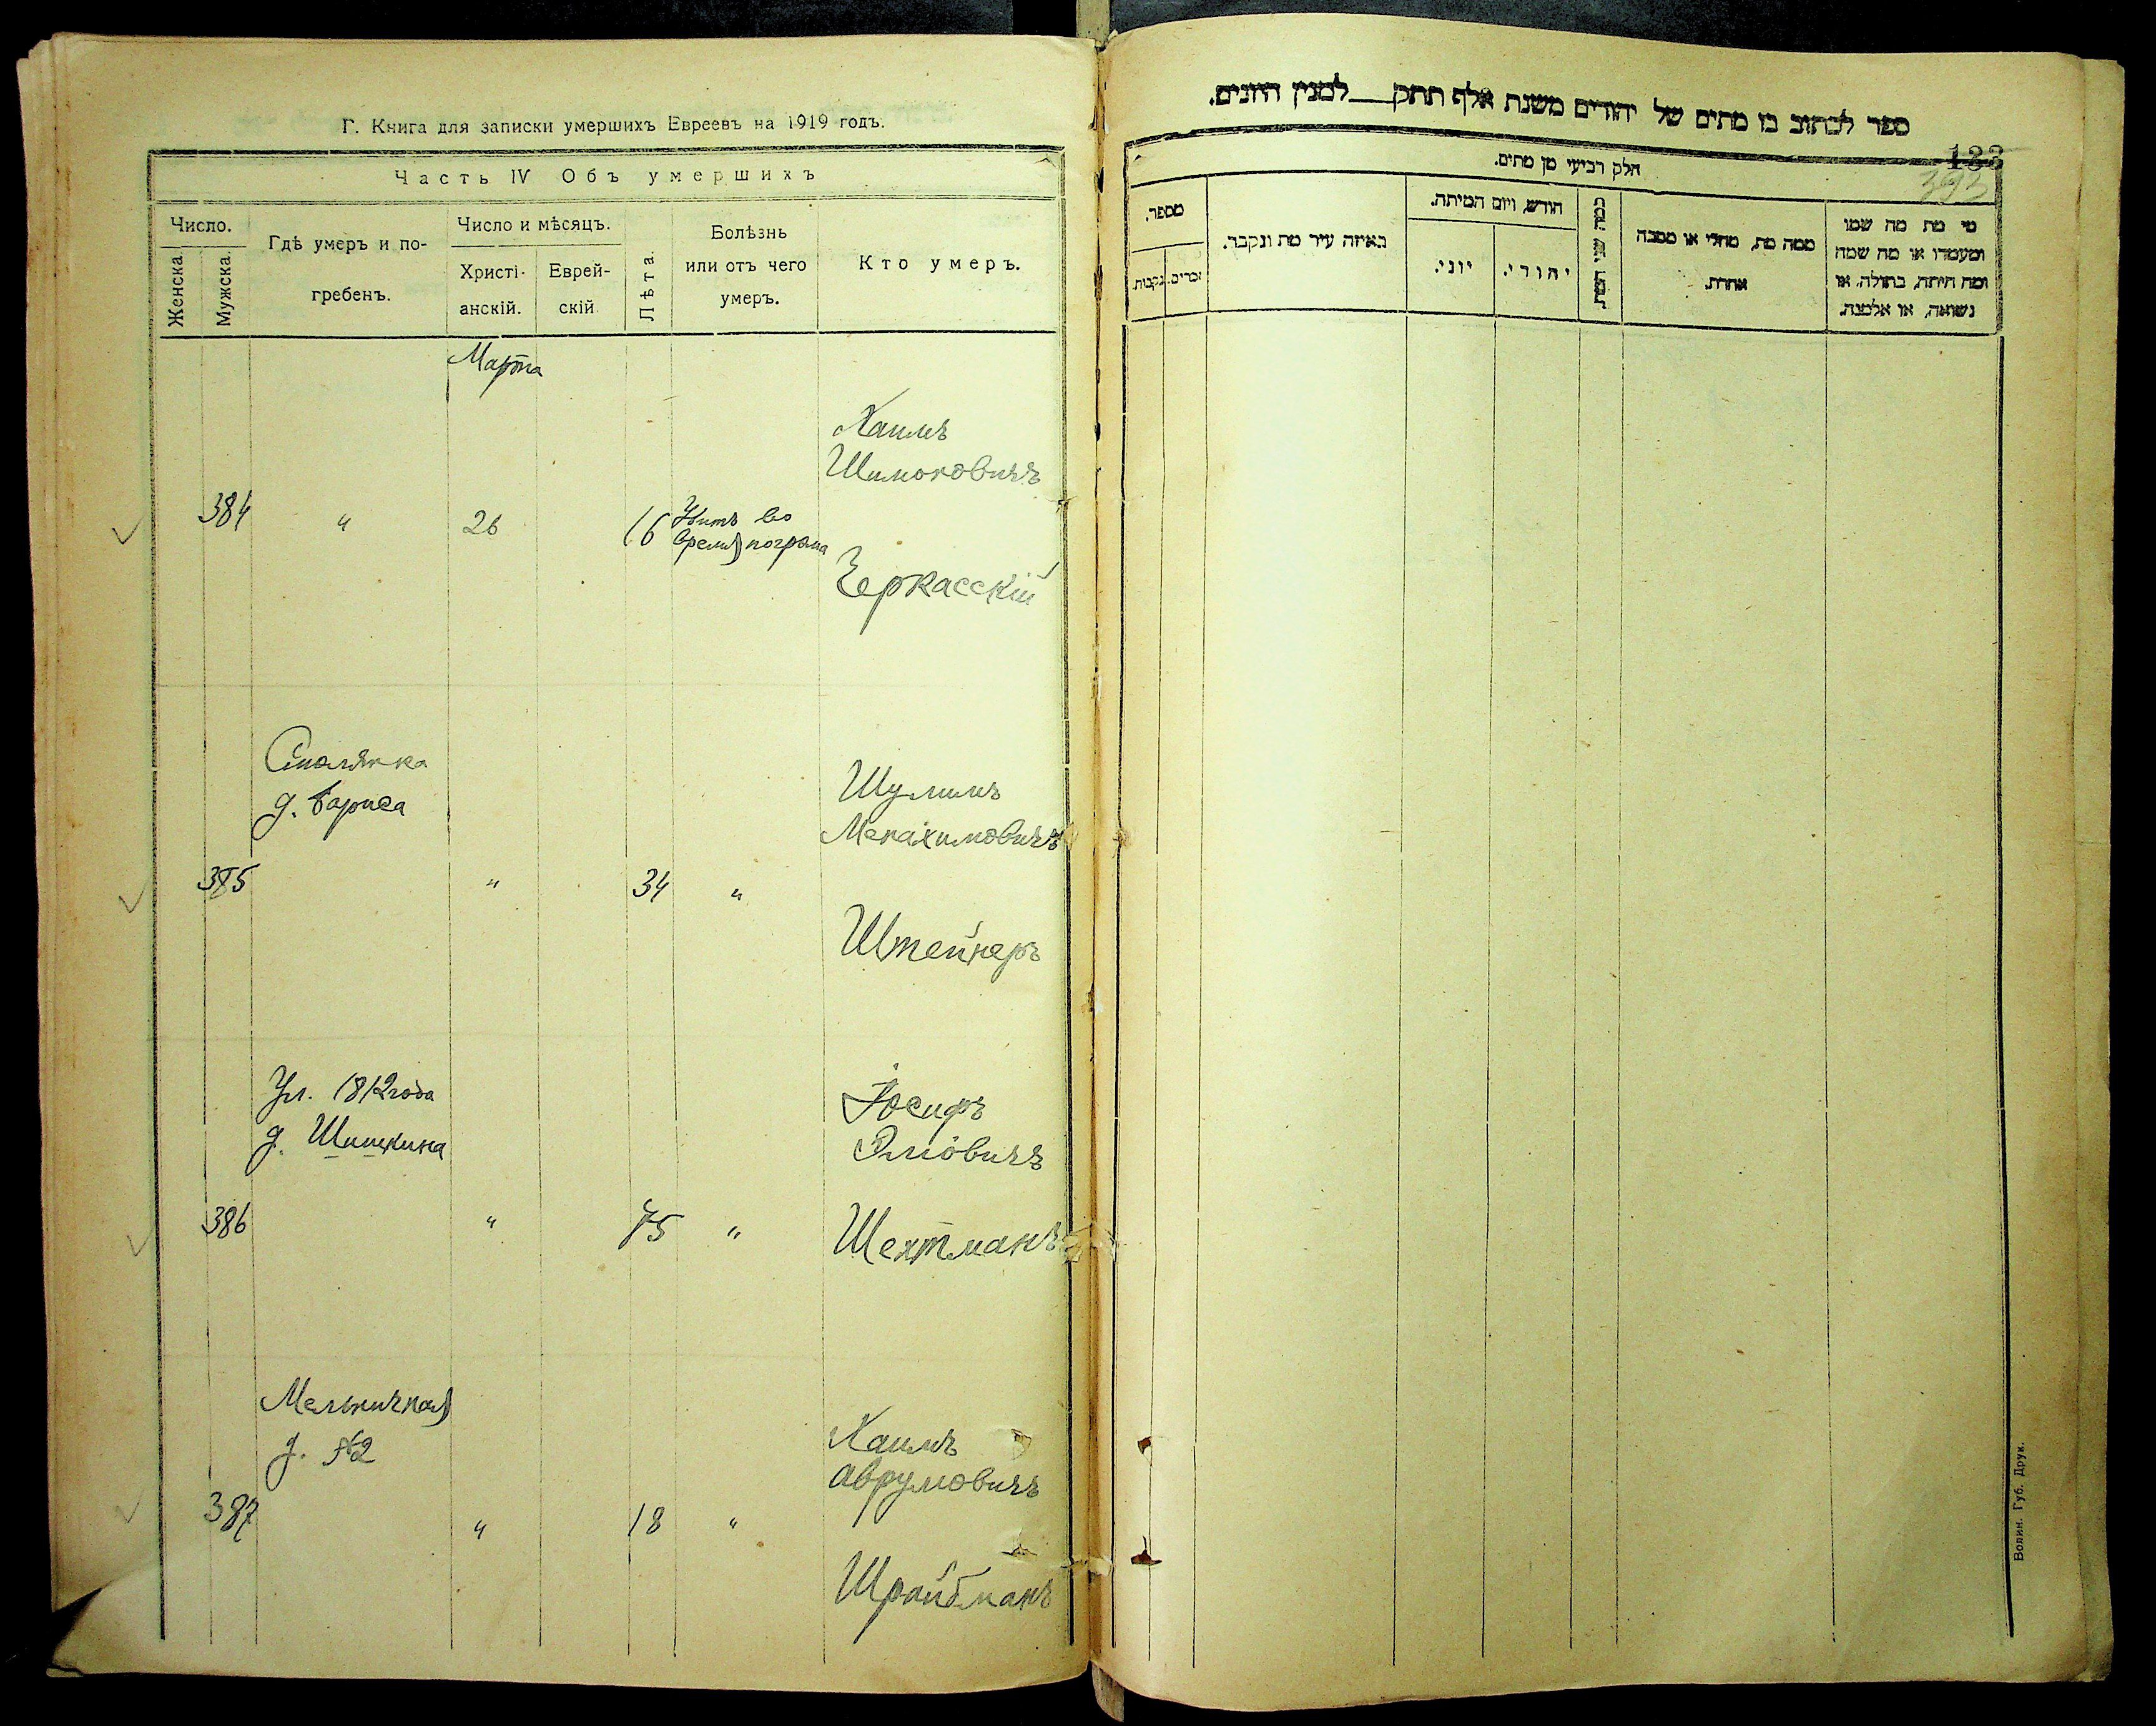 Г. Книга для записки умершихъ Евреевъ на 1919 годъ.
Часть IV Объ умершихъ
Число.
Женска.
Мужска.
Гдѣ умеръ и по-
гребенъ.
Число и мѣсяцъ.
Христі-
анскій.
Еврей-
скій
Лѣта.
Болѣзнь
или отъ чего
умеръ.
Кто умеръ.
Марта
Хаимъ
Шимоновичъ
384 " 26 16 Убитъ во
время погрома
Черкасскій
Смолянка
д. Бориса
Шулимъ
Менахимовичъ
385 " 34 "
Штейнеръ
Ул. 1812 года
д. Шишкина
Іосифъ
Эліовичъ
386 " 75 "
Шехтманъ
Мельничная
д. №2
Хаимъ
Аврумовичъ
387 " 18 "
Шрайбманъ
ספר לכתוב בו מתים של יהודים משנת אלף תתק___למנין היונים.
133
393
חלק רביעי מן מתים.
מי מת מה שמו
ומעמדו או מה שמה
ומה היתה, בתולה, או
נשואה, או אלמנה.
ממה מת, מחלי או מסבה
אחרת.
כמה שני המת.
חודש, ויום המיתה.
יהודי.
יוני.
באיזה עיר מת ונקבר.
מספר.
זכרים.
נקבות.
Волин. Губ. Друк.